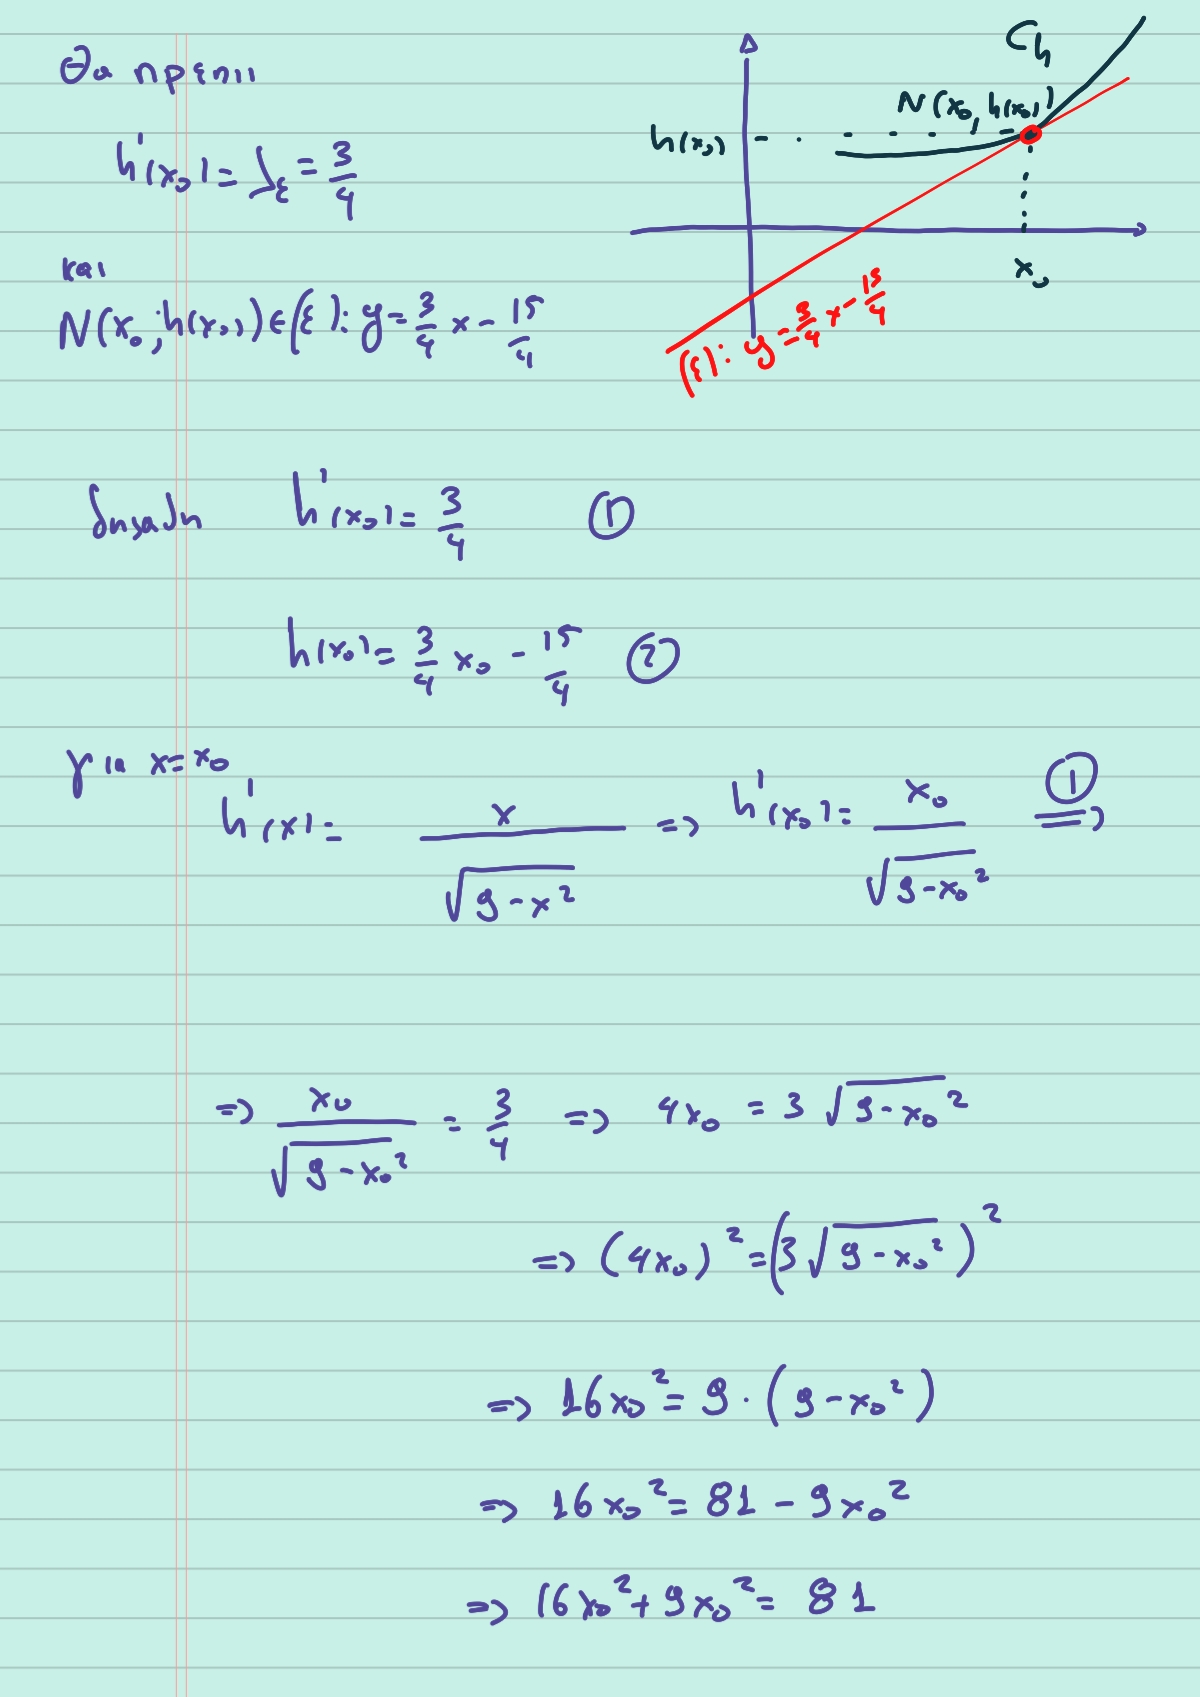 Θα πρέπει
h'(x₀) = λ_ε = 3/4
και
N(x₀, h(x₀)) ∈ (ε): y = 3/4 x - 15/4
C_h
N(x₀, h(x₀))
h(x₀)
x₀
(ε): y = 3/4 x - 15/4
δηλαδή h'(x₀) = 3/4 ①
h(x₀) = 3/4 x₀ - 15/4 ②
για x = x₀
h'(x) = x/√(9-x²) => h'(x₀) = x₀/√(9-x₀²) ① =>
=> x₀/√(9-x₀²) = 3/4 => 4x₀ = 3√(9-x₀²)
=> (4x₀)² = (3√(9-x₀²))²
=> 16x₀² = 9·(9-x₀²)
=> 16x₀² = 81 - 9x₀²
=> 16x₀² + 9x₀² = 81